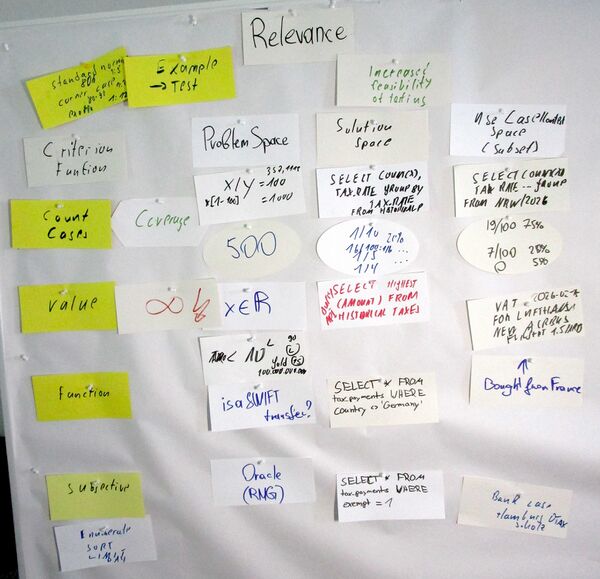 Relevance
standard normal
80%
corner case
Example
→ Test
Increased
feasibility
of testing
Criterion
Function
Problem Space
Solution
space
Use Case/Context
Space
(Subset)
X/Y = 100
x[1-100] = 1000
SELECT COUNT(),
TAX.RATE GROUP BY
TAX.RATE
FROM HISTORICAL
SELECT COUNT(),
TAX RATE ... GROUP
FROM NRW/2026
Count
Cases
Coverage
500
1/10 25%
1/5 ...
1/4
19/100 75%
7/100 20%
0 5%
value
∞
x∈ℝ
SELECT HIGHEST
(AMOUNT) FROM
HISTORICAL TAXES
VAT
FOR LUFTHANSA
NEW
< 10
100.000.000.000
↑
Bought from France
Function
is a SWIFT
transfer?
SELECT * FROM
tax.payments WHERE
country <> 'Germany'
Subjective
Oracle
(RNG)
SELECT * FROM
tax.payments WHERE
exempt = 1
Bank case
Hamburg
Scholz
Enumerate
SORT
LIMIT